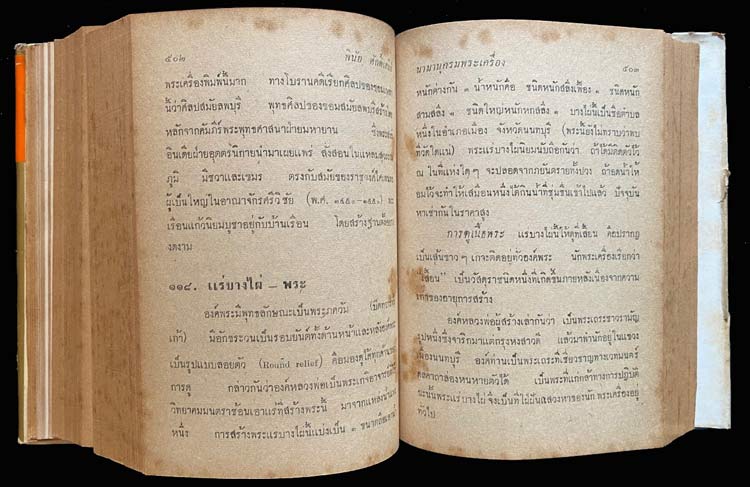 ๕๐๒ พินัย ศักดิ์เสนีย์
พระเครื่องพิมพ์นี้มาก ทางโบราณคดีเรียกศิลปของขอม
นี้ว่าศิลปสมัยลพบุรี พุทธศิลปของขอมสมัยลพบุรีสร้างโดย
หลักจากคัมภีร์พระพุทธศาสนาฝ่ายมหายาน ซึ่งพระสงฆ์
อินเดียฝ่ายอุตตรนิกายนำมาเผยแพร่ สั่งสอนในแหลมสุวรรณ
ภูมิ มีชวาและเขมร ตรงกับสมัยของราชวงศ์ไศเลนทร
ผู้เป็นใหญ่ในอาณาจักรศรีวิชัย (พ.ศ. ๑๒๕๐-๑๕๕๐)
เรือนแก้วนิยมบูชาอยู่กับบ้านเรือน โดยสร้างฐานตั้ง
งดงาม
๑๑๘. แร่บางไผ่ – พระ
องค์พระมีพุทธลักษณะเป็นพระภควัม (ปิดทวาร
เก้า) มีอักขระวนเป็นรอบยันต์ทั้งด้านหน้าและหลังองค์พระ
เป็นรูปแบบลอยตัว (Round relief) คือมองดูได้ทุกด้าน
การดู กล่าวกันว่าองค์หลวงพ่อเป็นพระเกจิอาจารย์ที่
วิทยาคมมนตราช้อนเอาแร่ที่สร้างพระนี้ มาจากแหล่งน้ำ
หนึ่ง การสร้างพระแร่บางไผ่นี้แบ่งเป็น ๓ ขนาด
นานานุกรมพระเครื่อง ๕๐๓
หนักต่างกัน ๓ น้ำหนักคือ ชนิดหนักสลึงเฟื้อง ๑ ชนิดหนัก
สามสลึง ๑ ชนิดใหญ่หนักหกสลึง ๑ บางไผ่นี้เป็นชื่อตำบล
หนึ่งในอำเภอเมือง จังหวัดนนทบุรี (พระนี้ยังไม่ทราบว่าพบ
ที่วัดใดแน่) พระแร่บางไผ่นิยมนับถือกันว่า ถ้าได้มีติดตัวไว้
ณ ในที่แห่งใดๆ จะปลอดจากภยันตรายทั้งปวง ถ้าอดน้ำให้
อมไว้จะทำให้เสมือนหนึ่งได้กินน้ำที่ชุ่มชื่นเข้าไปแล้ว ปัจจุบัน
หาเช่ากันในราคาสูง
การดูเนื้อพระ แร่บางไผ่นี้ให้ดูที่เสี้ยน คือปรากฏ
เป็นเส้นขาวๆ เกาะติดอยู่ที่องค์พระ นักพระเครื่องเรียกว่า
"เสี้ยน" เป็นวัสดุราชนิดหนึ่งที่เกิดขึ้นภายหลังเนื่องจากความ
เก่าของอายุการสร้าง
องค์หลวงพ่อผู้สร้างเล่ากันว่า เป็นพระเถระชาวรามัญ
รูปหนึ่งซึ่งจาริกมาแต่กรุงหงสาวดี แล้วมาพำนักอยู่ในแขวง
เมืองนนทบุรี องค์ท่านเป็นพระเถระที่เชี่ยวชาญทางเวทมนตร์
คลคาถาล่องหนหายตัวได้ เป็นพระที่แก่กล้าทางการปฏิบัติ
ฉะนั้นพระแร่บางไผ่ จึงเป็นที่ใฝ่ฝันแสวงหาของนักพระเครื่องอยู่
ทั่วไป